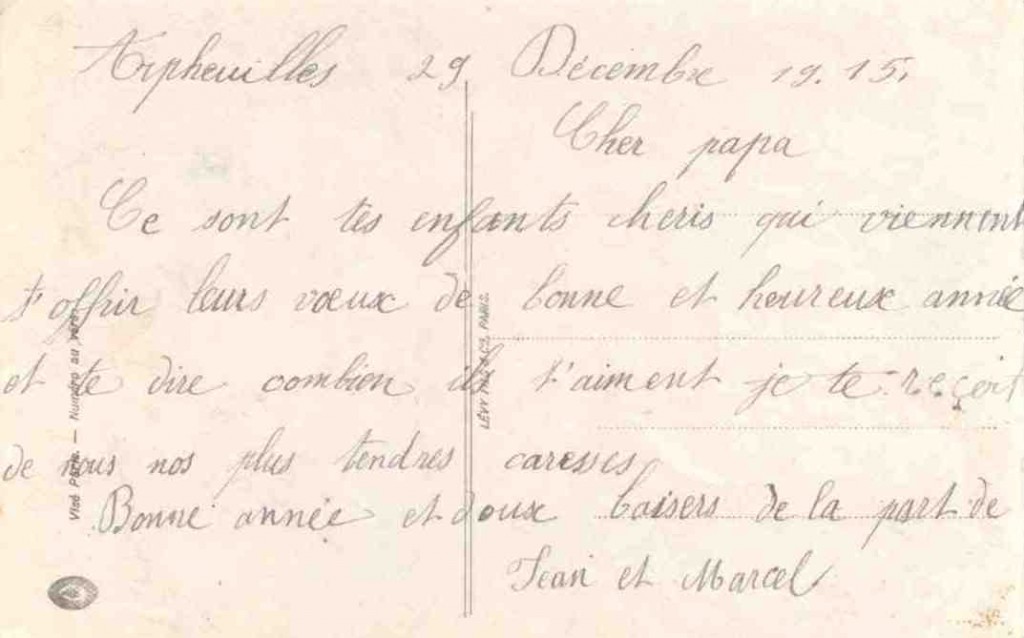 Arpheuilles 29 Décembre 1915.
Cher papa
Ce sont tes enfants cheris qui viennent
t'offrir leurs vœux de bonne et heureuse année
et te dire combien ils t'aiment je te reçoit
de nous nos plus tendres caresses
Bonne année et doux baisers de la part de
Jean et Marcel
Visé Paris. — Numéro au verso
LÉVY FILS & Cie, PARIS.